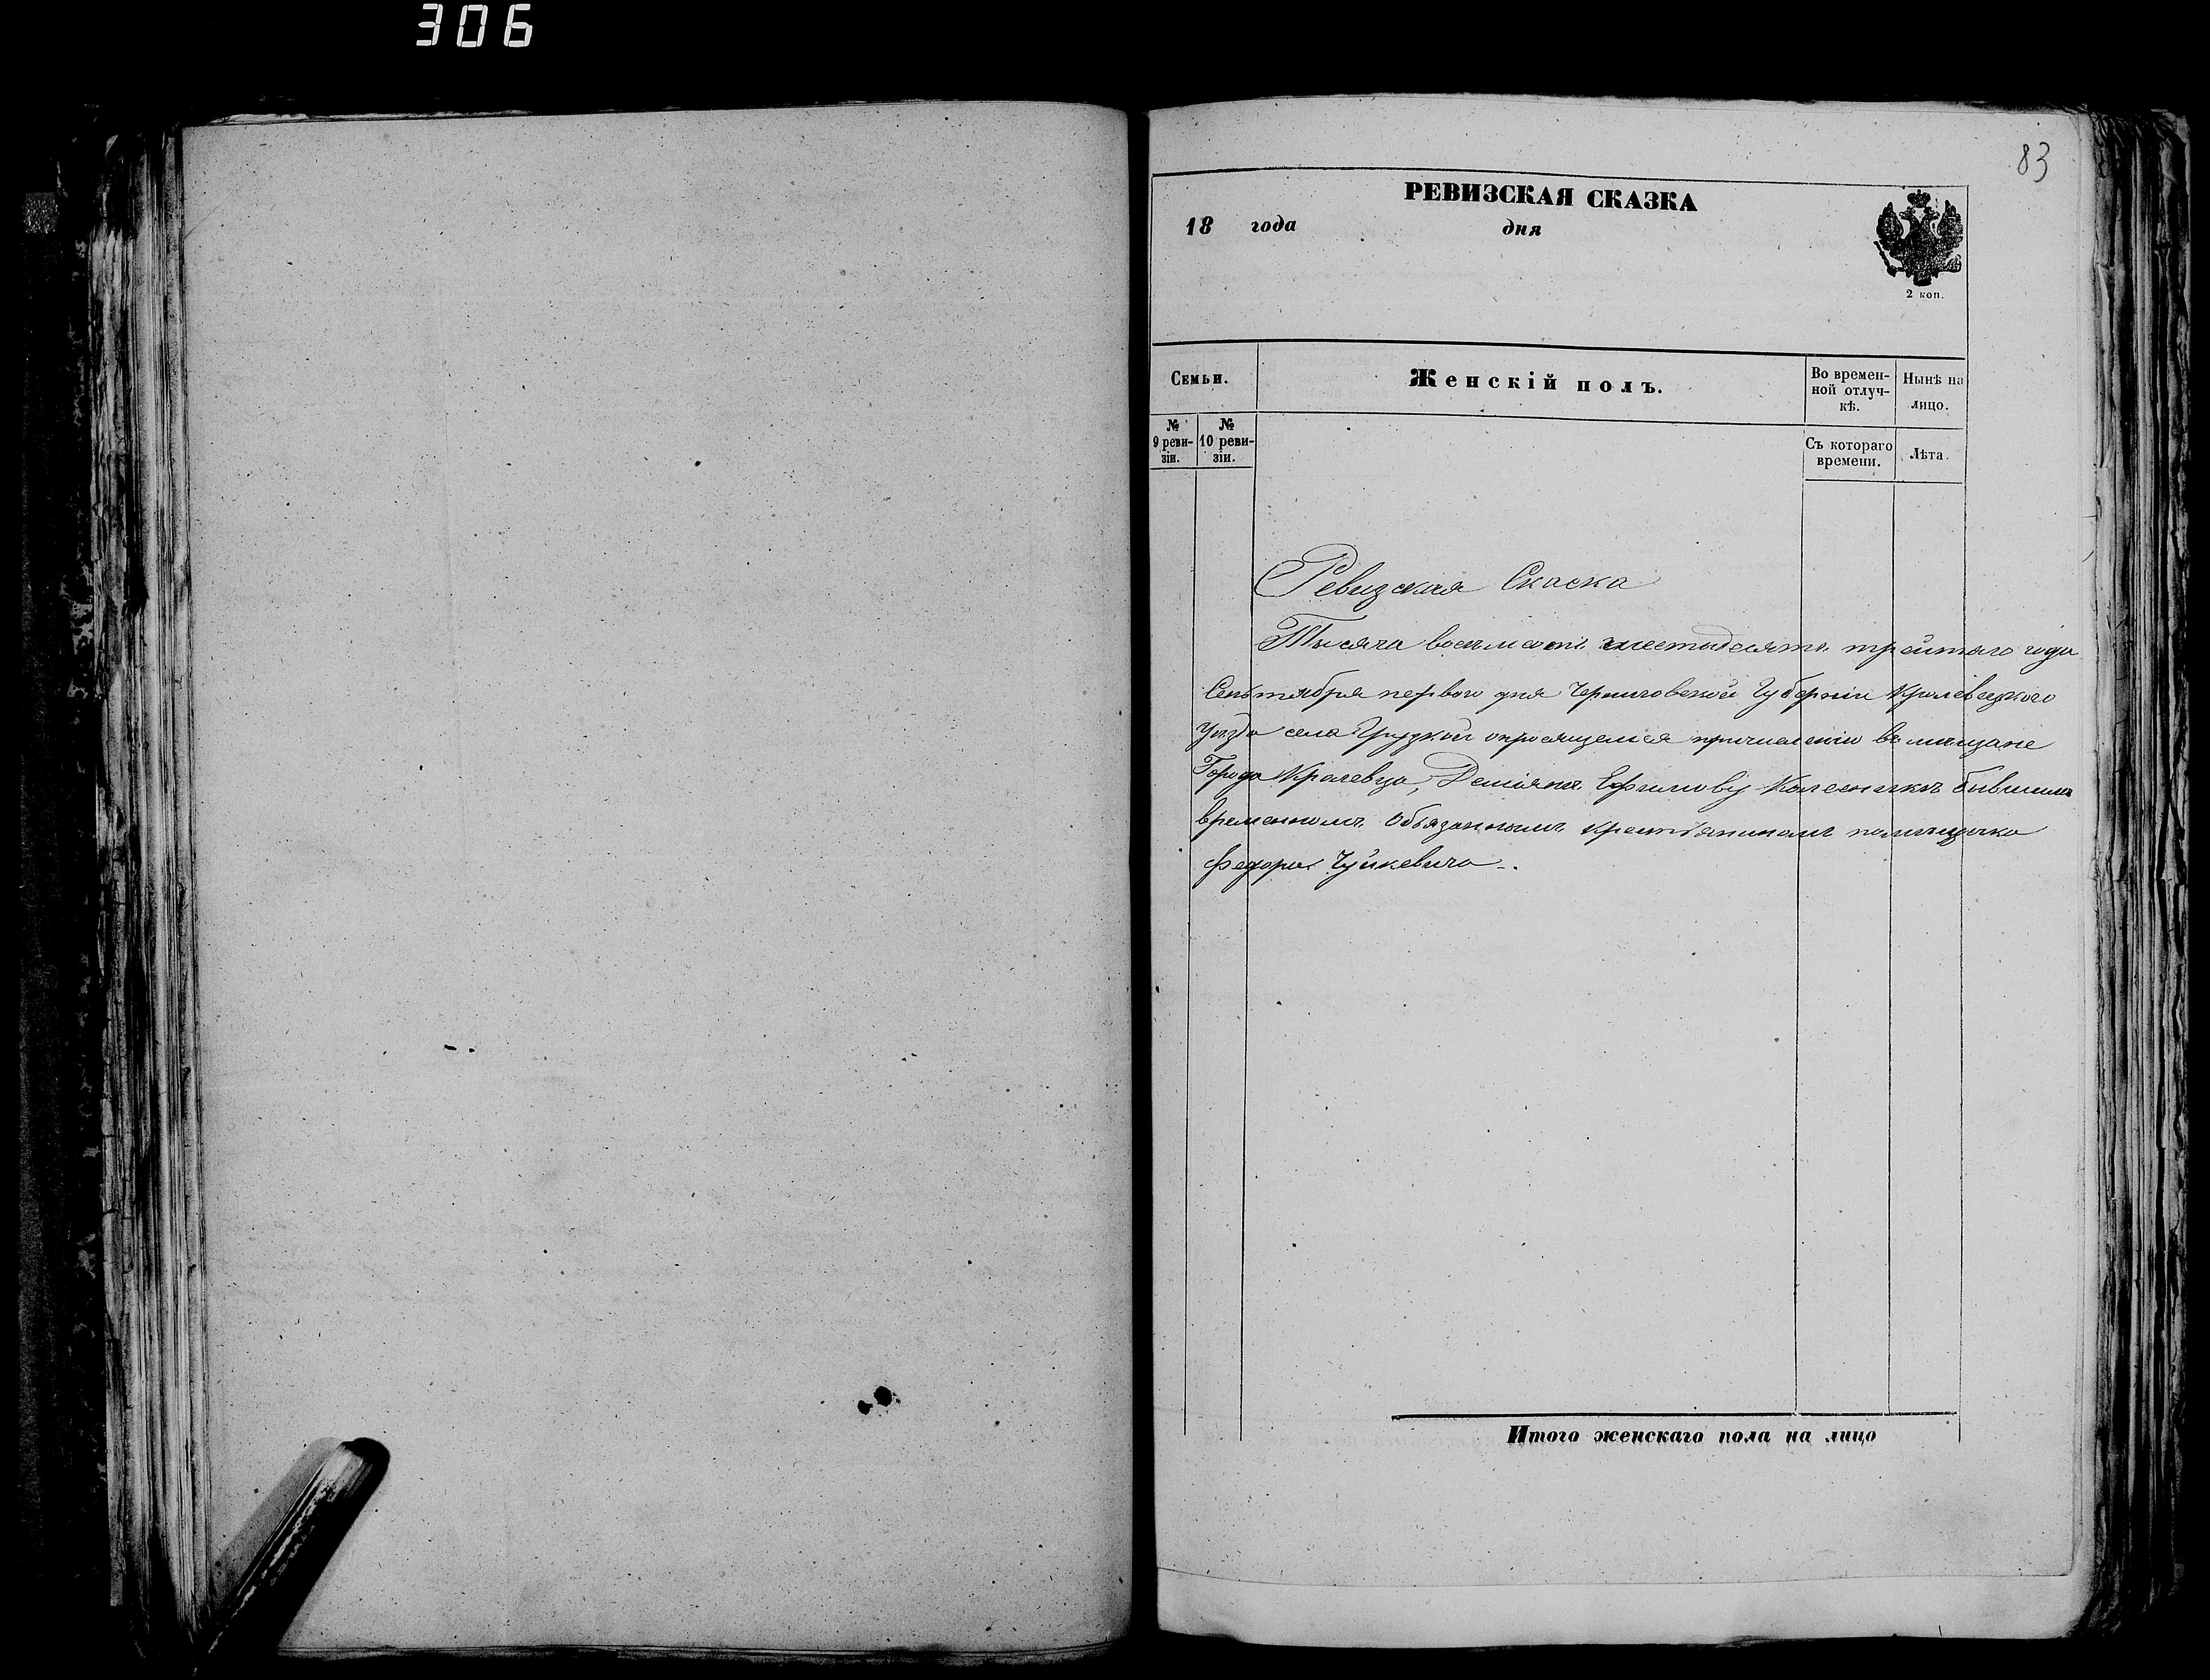 306
83
РЕВИЗСКАЯ СКАЗКА
18 года дня
2 коп.
Семьи.
Женскій полъ.
Во времен-
ной отлуч-
кѣ.
Нынѣ на
лицо.
№
9 реви-
зіи.
№
10 реви-
зіи.
Съ котораго
времени.
Лѣта.
Ревизская Скаска
Тысяча восемсотъ шестьдесятъ третьяго года
Сентября первого дня Черниговской Губерніи Кролевецкого
Уезда села Грузкой опросящемся причисленіи въ мещане
Города Кролевца, Деміяна Ефимову Колесникъ бывшимъ
временномъ Обязаннымъ крестьяниномъ помещика
Федора Чуйкевича.
Итого женскаго пола на лицо